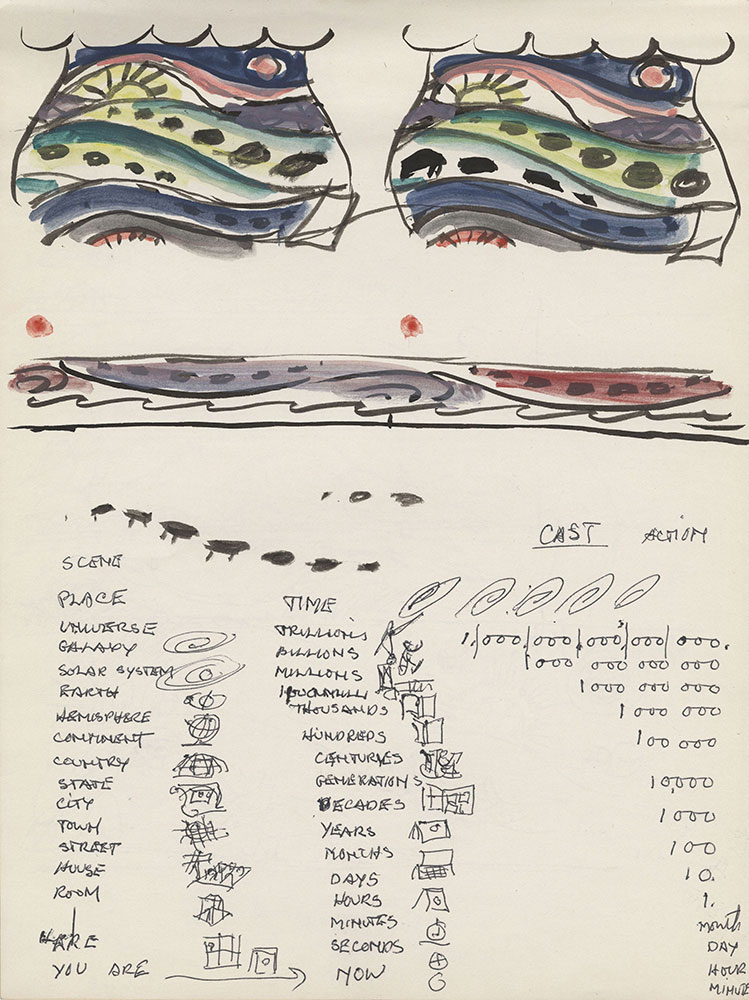 CAST ACTION
SCENE
PLACE
UNIVERSE
GALAXY
SOLAR SYSTEM
EARTH
HEMISPHERE
CONTINENT
COUNTRY
STATE
CITY
TOWN
STREET
HOUSE
ROOM
HERE
YOU ARE
TIME
TRILLIONS
BILLIONS
MILLIONS
THOUSANDS
HUNDREDS
CENTURIES
GENERATIONS
DECADES
YEARS
MONTHS
DAYS
HOURS
MINUTES
SECONDS
NOW
1.000 000 000 000 000.
1000 000 000 000
1000 000 000
1 000 000
100 000
10,000
1000
100
10.
1.
MONTH
DAY
HOUR
MINUTE